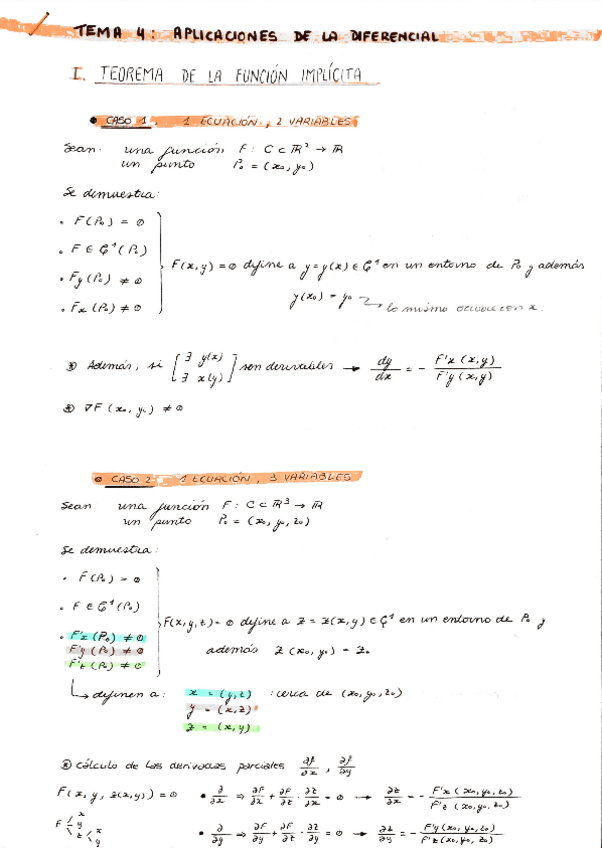 TEMA 4: APLICACIONES DE LA DIFERENCIAL
I. TEOREMA DE LA FUNCIÓN IMPLÍCITA
• CASO 1. 1 ECUACIÓN, 2 VARIABLES
Sean: una función F: C ⊂ ℝ² → ℝ
un punto P₀ = (x₀, y₀)
Se demuestra:
• F(P₀) = 0
• F ∈ C¹(P₀)
• Fy(P₀) ≠ 0
• Fx(P₀) ≠ 0
F(x,y) = 0 define a y = y(x) ∈ C¹ en un entorno de P₀ y además
y(x₀) = y₀ → lo mismo ocurre con x.
⊛ Además, si [∃ y(x) ∃ x(y)] son derivables → dy/dx = - F'x(x,y)/F'y(x,y)
⊛ ∇F(x₀, y₀) ≠ 0
• CASO 2. 1 ECUACIÓN, 3 VARIABLES
Sean una función F: C ⊂ ℝ³ → ℝ
un punto P₀ = (x₀, y₀, z₀)
Se demuestra:
• F(P₀) = 0
• F ∈ C¹(P₀)
• F'x(P₀) ≠ 0
F'y(P₀) ≠ 0
F'z(P₀) ≠ 0
F(x,y,z) = 0 define a z = z(x,y) ∈ C¹ en un entorno de P₀ y
además z(x₀,y₀) = z₀
↳ definen a: x = (y,z) : cerca de (x₀,y₀,z₀)
y = (x,z)
z = (x,y)
⊛ cálculo de las derivadas parciales ∂f/∂x, ∂f/∂y
F(x, y, z(x,y)) = 0 • ∂/∂x ⇒ ∂F/∂x + ∂F/∂z · ∂z/∂x = 0 → ∂z/∂x = - F'x(x₀,y₀,z₀)/F'z(x₀,y₀,z₀)
F x y z x y
• ∂/∂y ⇒ ∂F/∂y + ∂F/∂z · ∂z/∂y = 0 → ∂z/∂y = - F'y(x₀,y₀,z₀)/F'z(x₀,y₀,z₀)